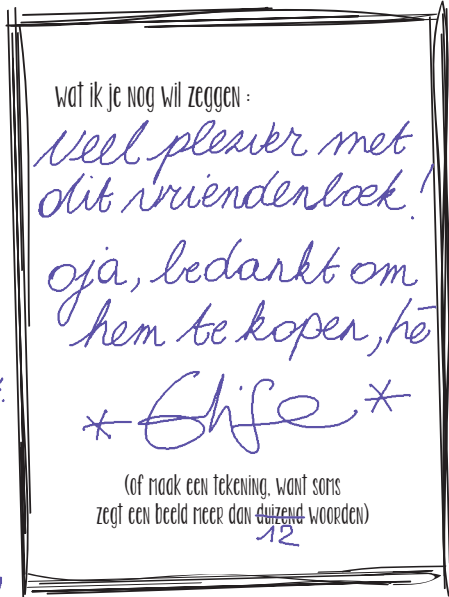 wat ik je nog wil zeggen :
Veel plezier met
dit vriendenboek!
oja, bedankt om
hem te kopen, hè
(of maak een tekening, want soms
zegt een beeld meer dan duizend woorden)
12